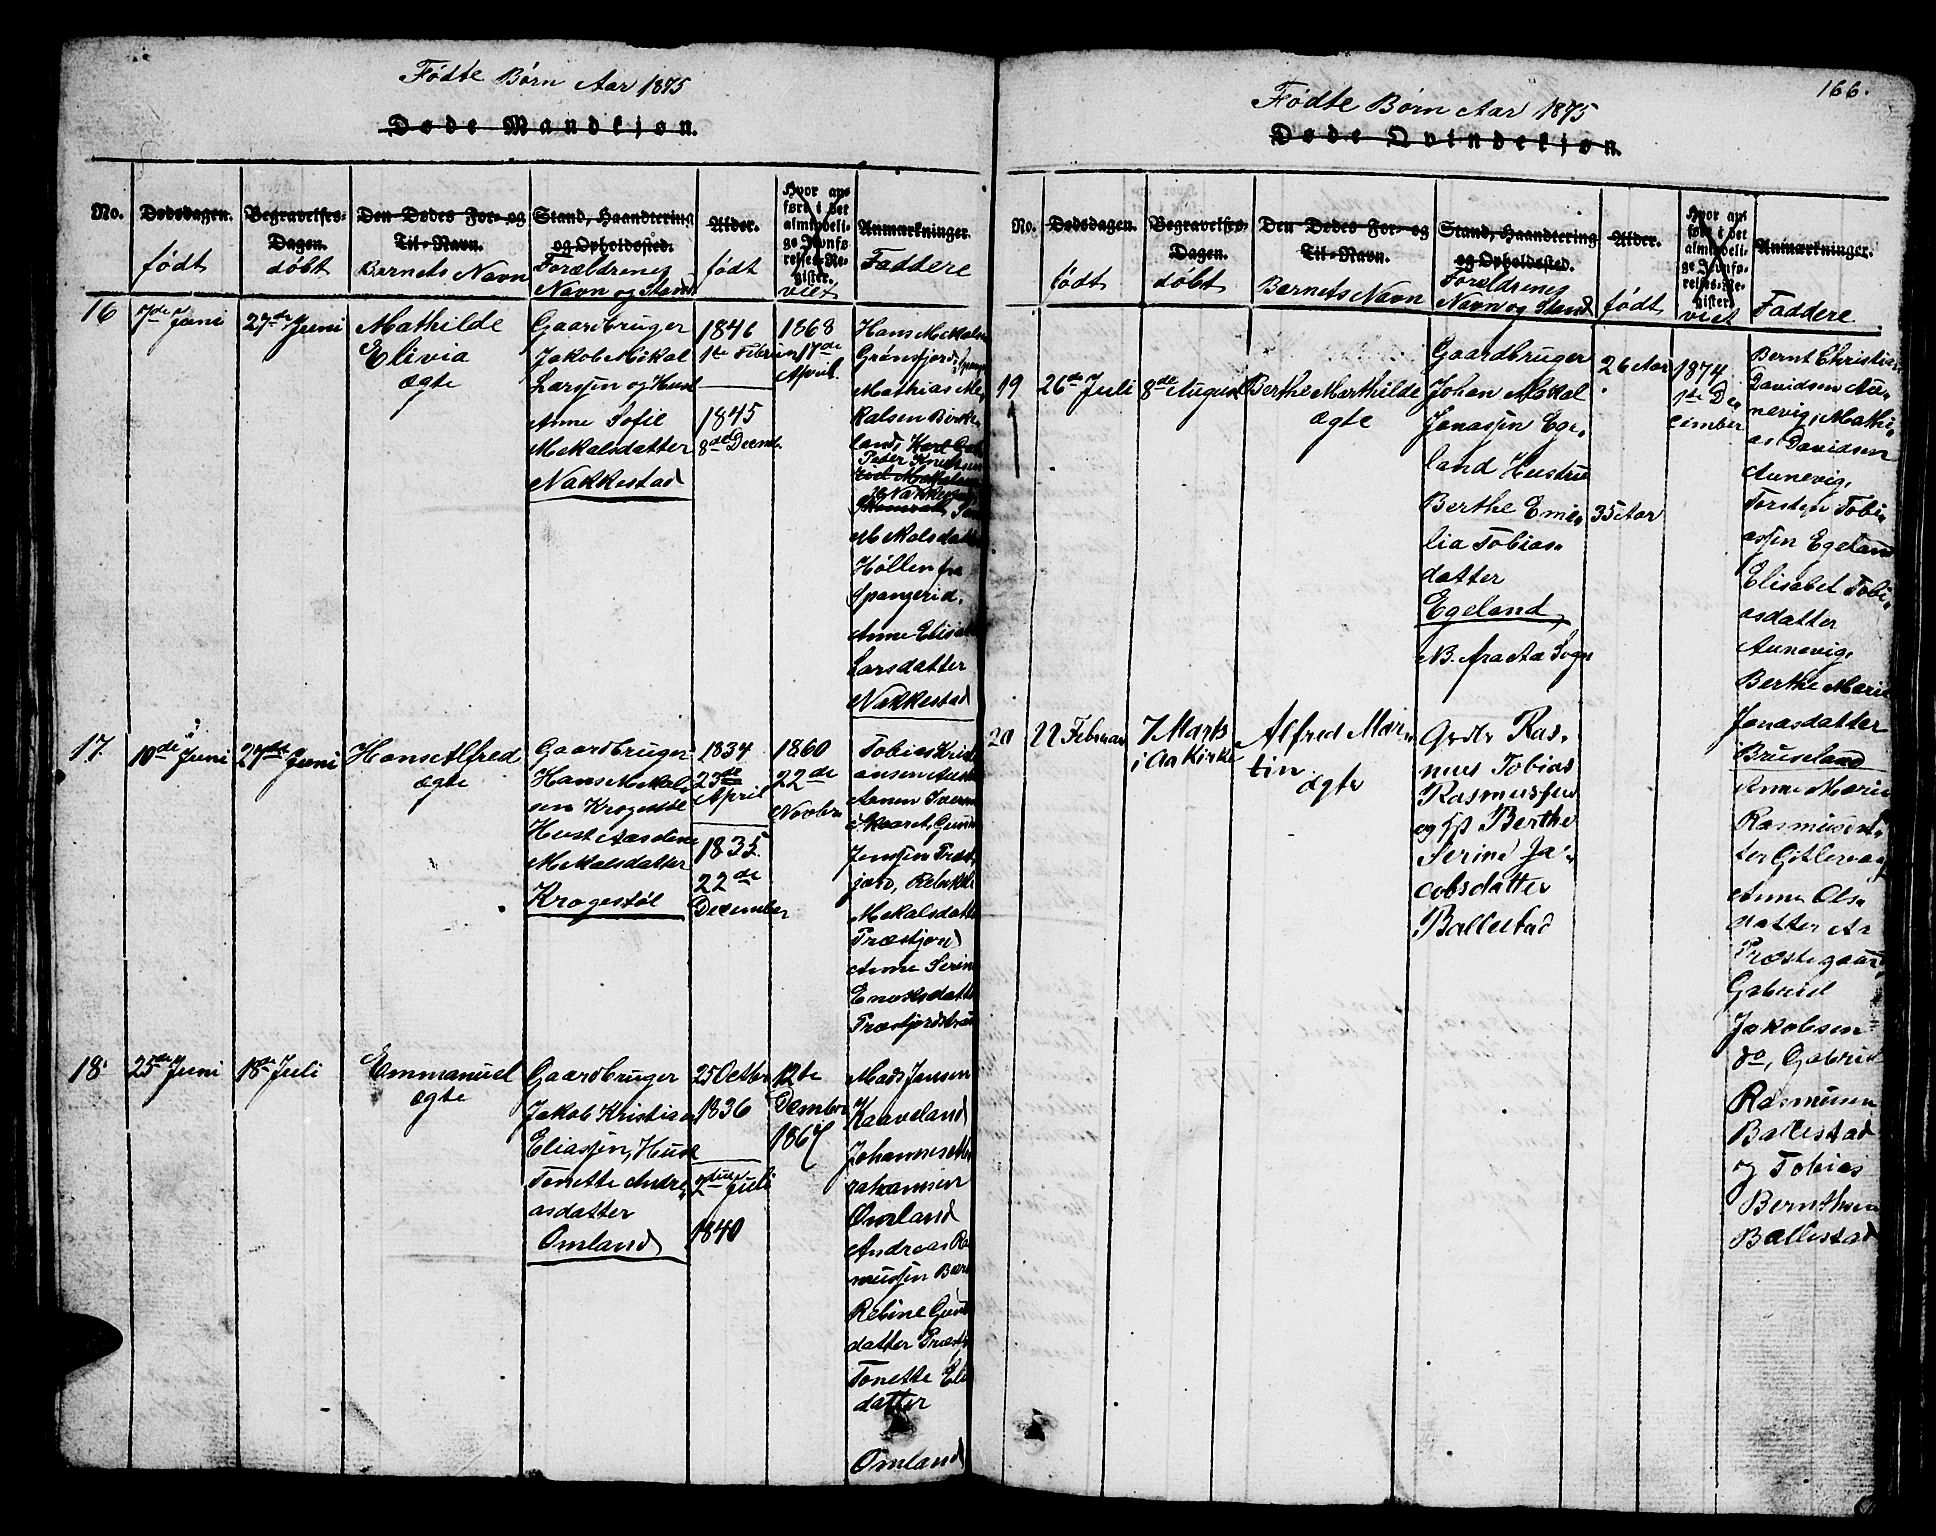 Fødte Børn Aar 1875
Døde Mandkjøn.
No.
Dødsdagen.
født
Begravelses-
Dagen.
døbt
Den Dødes For- og
Til-Navn.
Barnets Navn
Stand, Haandtering
og Opholdssted.
Forældrenes
Navn og Stand
Alder.
født
Hvor an-
ført i det
almindeli-
ge Jevnfø-
relses-Re-
gister.
viet
Anmærkninger.
Faddere
16
7de Juni
27de Juni
Mathilde
Elivia
ægte
Gaardbruger
Jakob Mikal
Larssen og Hust
Anne Sofie
Mekalsdatter
Nakkestad
1846
1te Februa
1845
8de Decemb.
1868
17de
April
Hans Mekals
Grønsfjord,
Mathias Me
kalsen Birke
land,
Peder Knudsen
Nakkestad
Mekalsdatter
Høllen fra
Spangerid.
Anne Elisab
Larsdatter
Nakkestad
17.
10de Juni
27de Juni
Hans Alfred
ægte
Gaardbruger
Hans Mekal
sen Krogestøl
Hust Aaselene
Mekalsdatter
Krogestøl
1834
23de
April
1835.
22de
December
1860
22de
Novbr
Tobias Krist
ansen
Jenssen
Mekalsdatt
Anne Serin
Enoksdatt
18.
25de Juni
18de Juli
Emmanuel
ægte
Gaardbruger
Jakob Kristian
Eliassen, Hust
Tonette Andre
asdatter
Omland
25 Octbr
1836
Juli
1840
12te
Decmbr
1867
Mads Jansen
Kaaveland
Johannes
Johannsen
Omland
Andreas Ra
mussen
Rebine
datter
Tonette Eli
datter
Omland
166.
Fødte Børn Aar 1875
Døde Qvindekjøn.
No.
Dødsdagen.
født
Begravelses-
Dagen.
døbt
Den Dødes For- og
Til-Navn.
Barnets Navn
Stand, Haandtering
og Opholdssted.
Forældrenes
Navn og Stand
Alder.
født
Hvor an-
ført i det
almindeli-
ge Jevnfø-
relses-Re-
gister.
viet
Anmærkninger.
Faddere
19
26de Juli
8de August
Berthe Marthilde
ægte
Gaardbruger
Johan Mekal
Jonassen Ege,
land Hustru
Berthe Emi,
lia Tobias,
datter
Egeland,
NB. fra Aa Sogn
26 Aar
35 Aar
1874
1te De,
cember
Bernt Christia
Davidsen Au,
nevig, Mathi,
as Davidsen
Aunevig,
Torsten Tobi,
assen Egeland
Elisabet Tobi,
asdatter
Aunevig,
Berthe Marie
Jonasdatter
Bruseland
20
22 Februar
7 Marts
i Aa Kirke
Alfred Mar,
tin
ægte
Gbr Ras,
mus Tobias
Rasmussen
og Berthe
Serine Ja,
cobsdatter
Ballestad
Anne Marie
Rasmusdat,
ter
Anne Ols,
datter Aa
Præstegaard,
Gabriel
Jakobsen
do, Gabriel
Rasmusen
Ballestad
og Tobias
Bernthsen
Ballestad